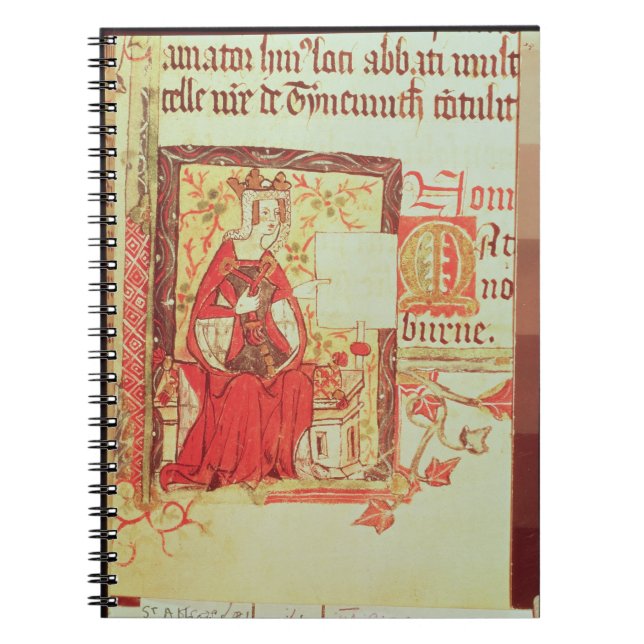 amator hui' loci abbati mult
celle nr̄e de Tynemuth cōtulit
Hom
Mat
no
burne.